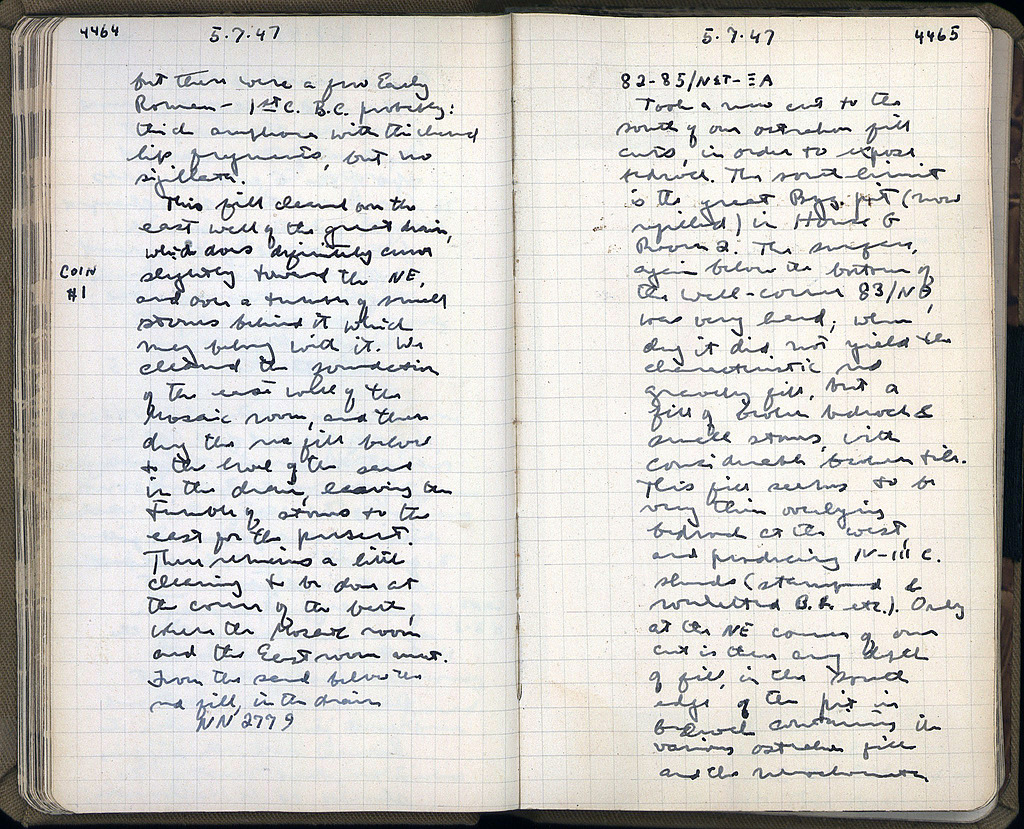 4464
5.7.47
but there were a few Early
Roman - 1st C. B.C. probably:
thick amphora with thickened
lip fragments, but no
sigillata.
This fill cleared on the
east wall of the great drain,
which does definitely curve
COIN
#1
slightly toward the NE,
and over a tumble of small
stones behind it which
may belong with it. We
cleared the foundation
of the east wall of the
Mosaic room, and then
dug the red fill below
to the level of the sand
in the drain, leaving the
tumble of stones to the
east for the present.
There remains a little
cleaning to be done at
the corner of the
where the Mosaic room
and the East room meet.
From the sand below the
red fill, in the drain
NN 2779
5.7.47
4465
82-85/ΝΣΤ-ΞΑ
Took a new cut to the
south of our ostrakon fill
cuts, in order to expose
bedrock. The south limit
is the great Byz. pit (now
refilled) in House G
Room 2. The surface,
again below the bottom of
the well-corner 83/NB,
was very hard; when
dug it did not yield the
characteristic red
gravelly fill, but a
fill of broken bedrock &
small stones, with
considerable broken tile.
This fill seems to be
very thin overlying
bedrock at the west,
and producing IV-III C.
sherds (stamped &
rouletted B.G. etc.). Only
at the NE corner of our
cut is there any depth
of fill, in the south
edge of the pit in
bedrock containing the
various ostrakon fill
and the